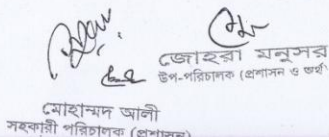 জোহরা মনসুর
উপ-পরিচালক (প্রশাসন ও অর্থ)
মোহাম্মদ আলী
সহকারী পরিচালক (প্রশাসন)